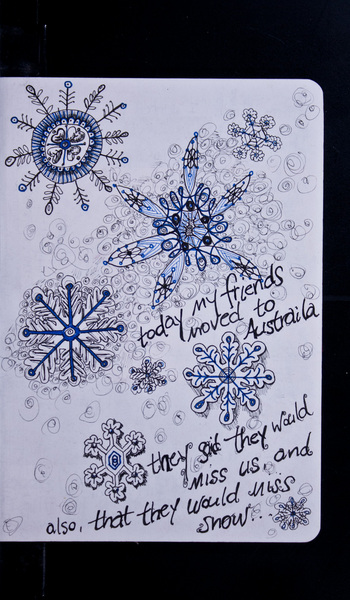 today my friends
moved to
Austraila
they said they would
miss us, and
also, that they would miss
snow...